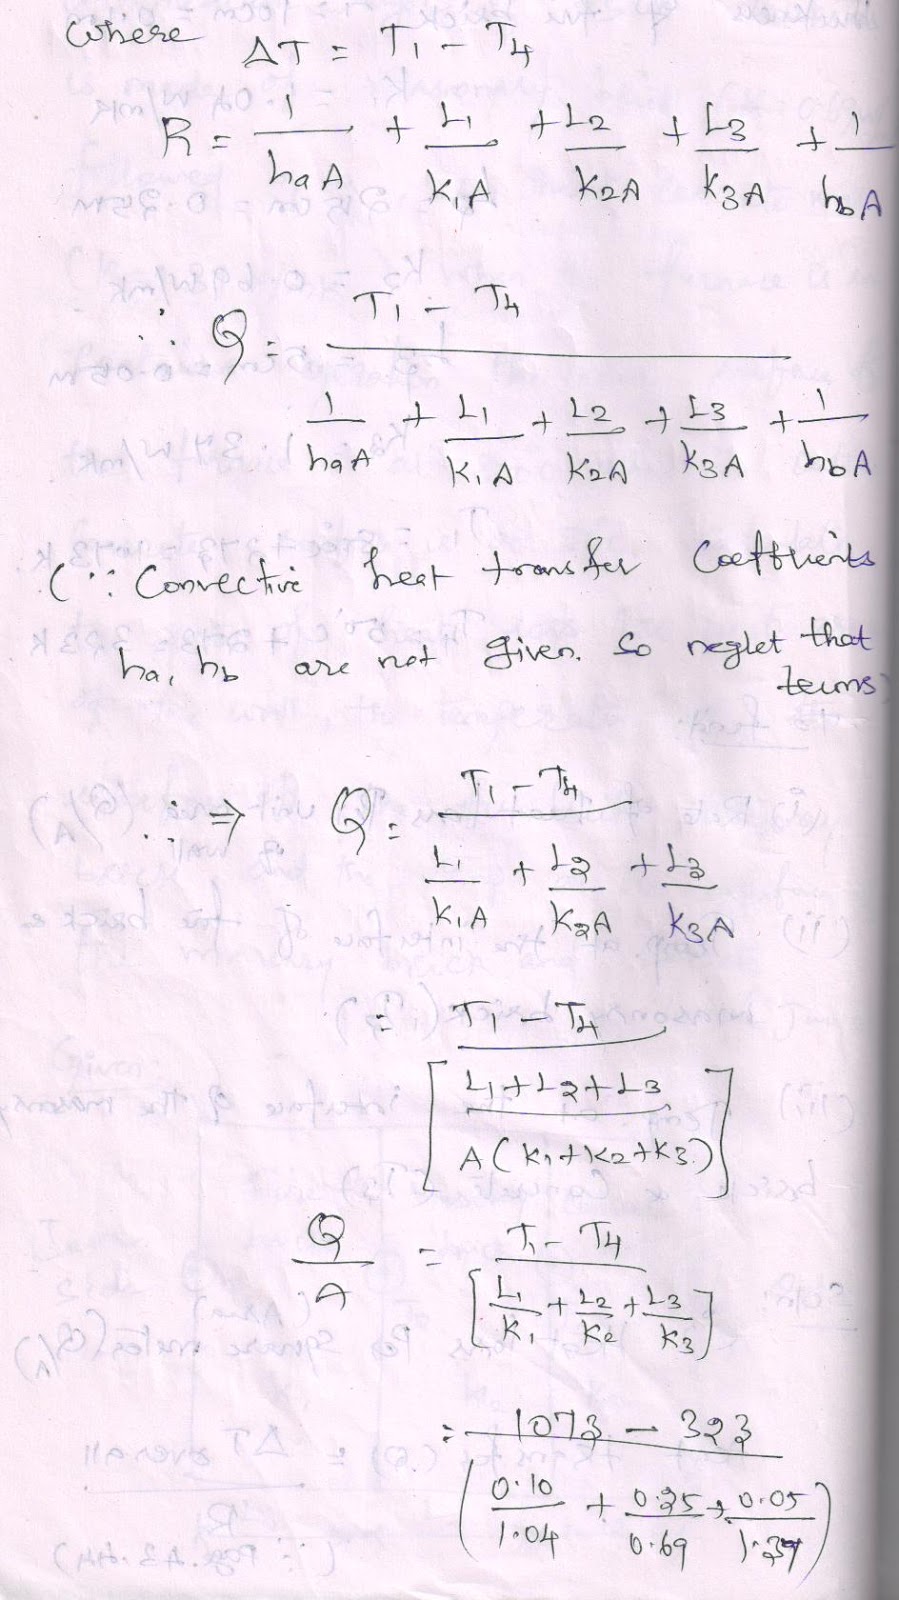 Where ΔT = T1 - T4
R = 1/haA + L1/K1A + L2/K2A + L3/K3A + 1/hbA
∴ Q = (T1 - T4) / (1/haA + L1/K1A + L2/K2A + L3/K3A + 1/hbA)
(∵ Convective heat transfer Coefficients
ha, hb are not given. So neglet that
terms)
∴ ⇒ Q = (T1 - T4) / (L1/K1A + L2/K2A + L3/K3A)
= (T1 - T4) / [(L1+L2+L3) / A(K1+K2+K3)]
Q/A = (T1 - T4) / [L1/K1 + L2/K2 + L3/K3]
= (1073 - 323) / (0.10/1.04 + 0.25/0.69 + 0.05/1.37)